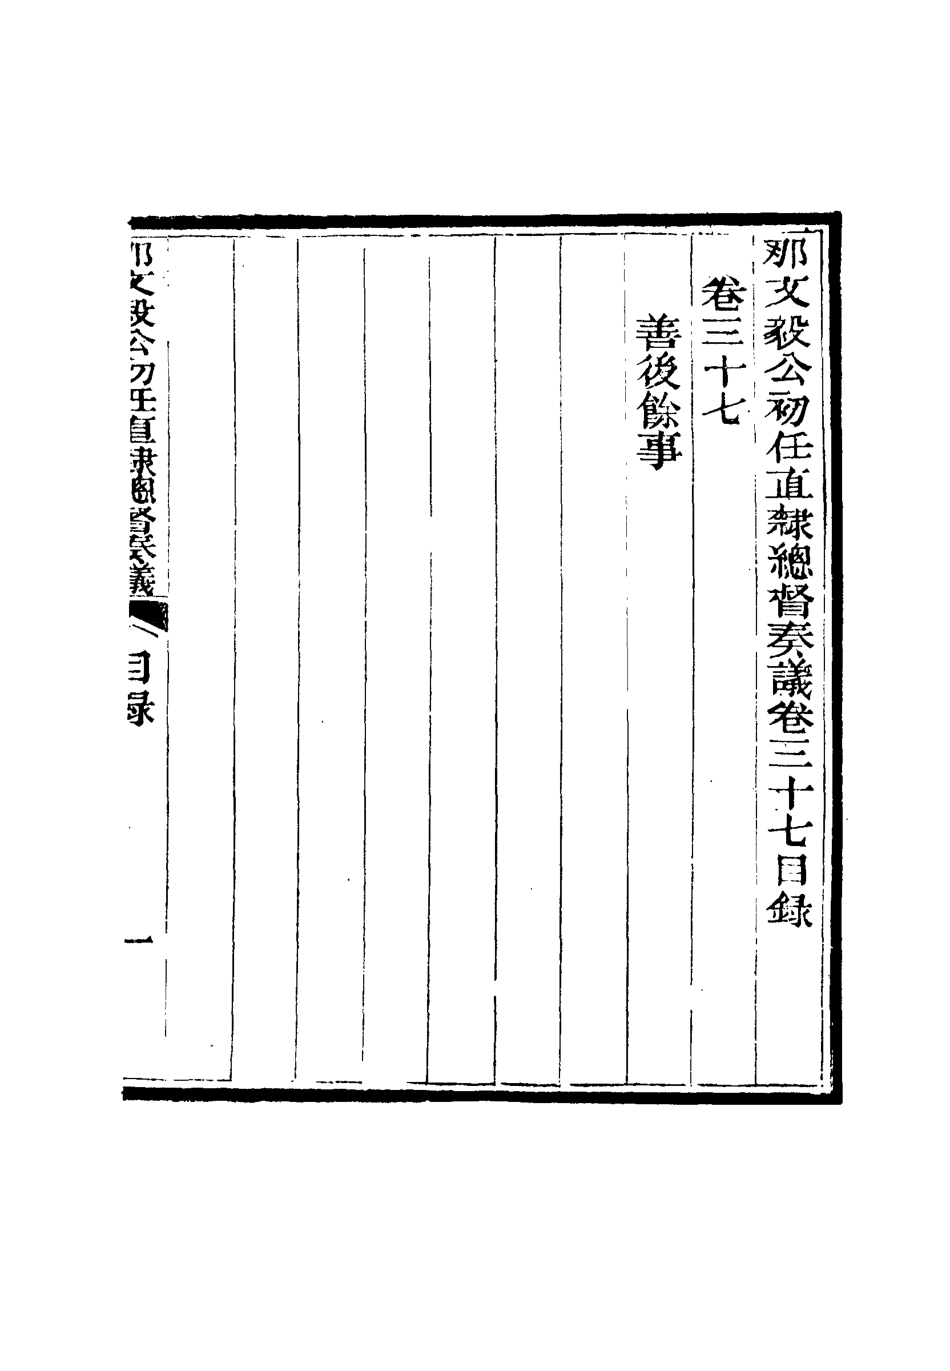 那文毅公初任直隸總督奏議卷三十七目録
卷三十七
善後餘事
那文毅公初任直隸總督奏議
目録
一